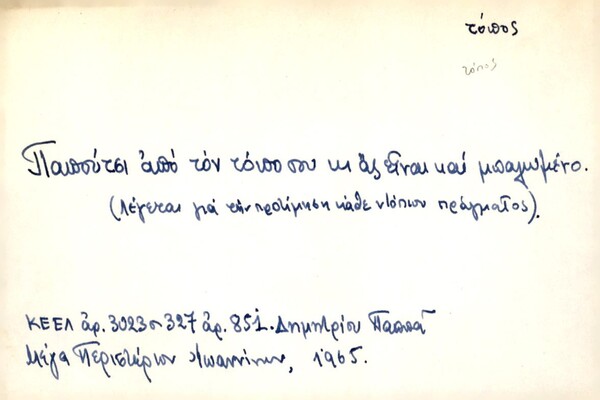 τόπος
τόπος
Παπούτσι ἀπό τόν τόπο σου κι ἄς εἶναι καί μπαλωμένο.
(Λέγεται γιά τήν προτίμηση κάθε ντόπιου πράγματος).
ΚΕΕΛ ἀρ. 3023 σ 327 ἀρ. 851. Δημητρίου Παππᾶ
Μέγα Περιστέριον Ἰωαννίνων, 1965.